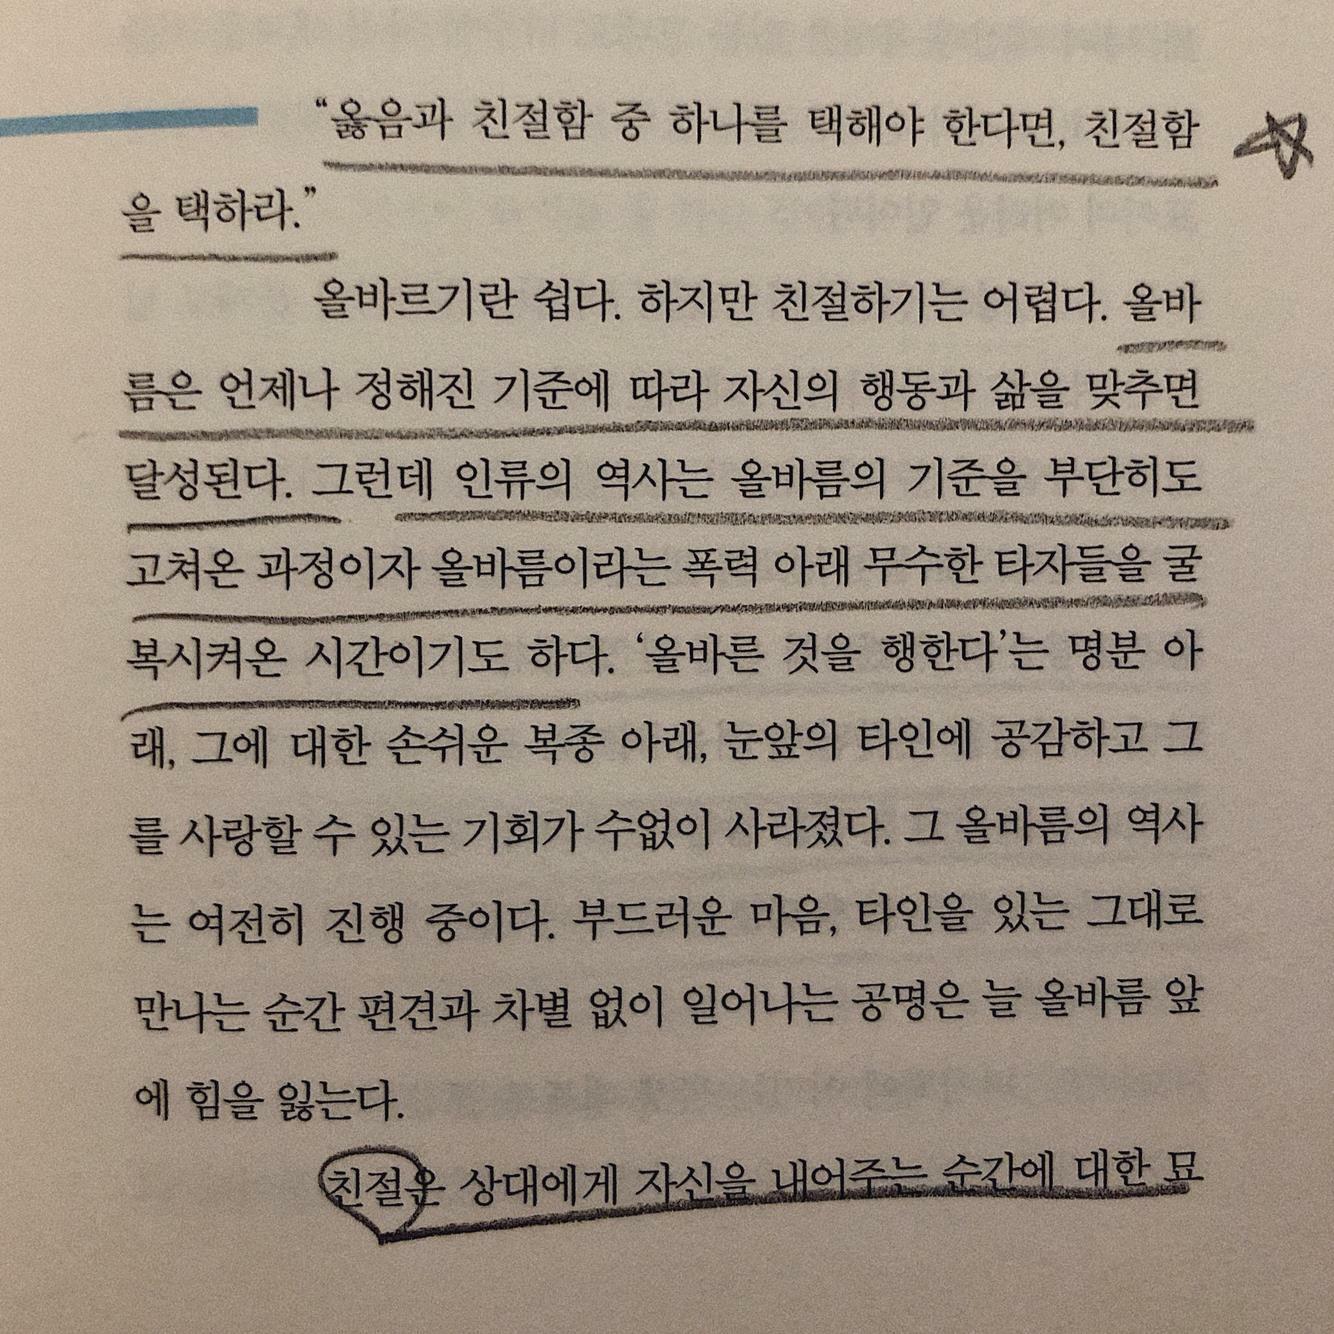 “옳음과 친절함 중 하나를 택해야 한다면, 친절함
을 택하라.”
올바르기란 쉽다. 하지만 친절하기는 어렵다. 올바
름은 언제나 정해진 기준에 따라 자신의 행동과 삶을 맞추면
달성된다. 그런데 인류의 역사는 올바름의 기준을 부단히도
고쳐온 과정이자 올바름이라는 폭력 아래 무수한 타자들을 굴
복시켜온 시간이기도 하다. ‘올바른 것을 행한다’는 명분 아
래, 그에 대한 손쉬운 복종 아래, 눈앞의 타인에 공감하고 그
를 사랑할 수 있는 기회가 수없이 사라졌다. 그 올바름의 역사
는 여전히 진행 중이다. 부드러운 마음, 타인을 있는 그대로
만나는 순간 편견과 차별 없이 일어나는 공명은 늘 올바름 앞
에 힘을 잃는다.
친절은 상대에게 자신을 내어주는 순간에 대한 묘